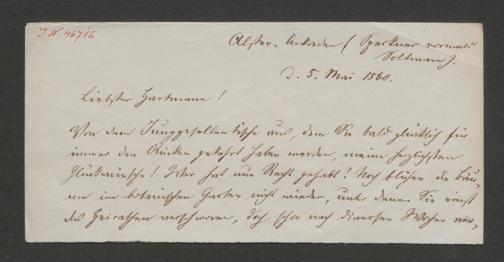 I.N. 46715
Alster-Arkaden (Speckner vormals
Soltmann).
d. 5. Mai 1860.
Liebster Hartmann!
Von dem Junggesellentische aus, dem Sie bald glücklich für
immer den Rücken gekehrt haben werden, meine herzlichsten
Glückwünsche! Wer hat nun Recht gehabt? Noch blühen die Bäu-
me im botanischen Garten nicht wieder, unter denen Sie einst
das Heirathen verschworen, doch schon nach diversen Wochen wer-